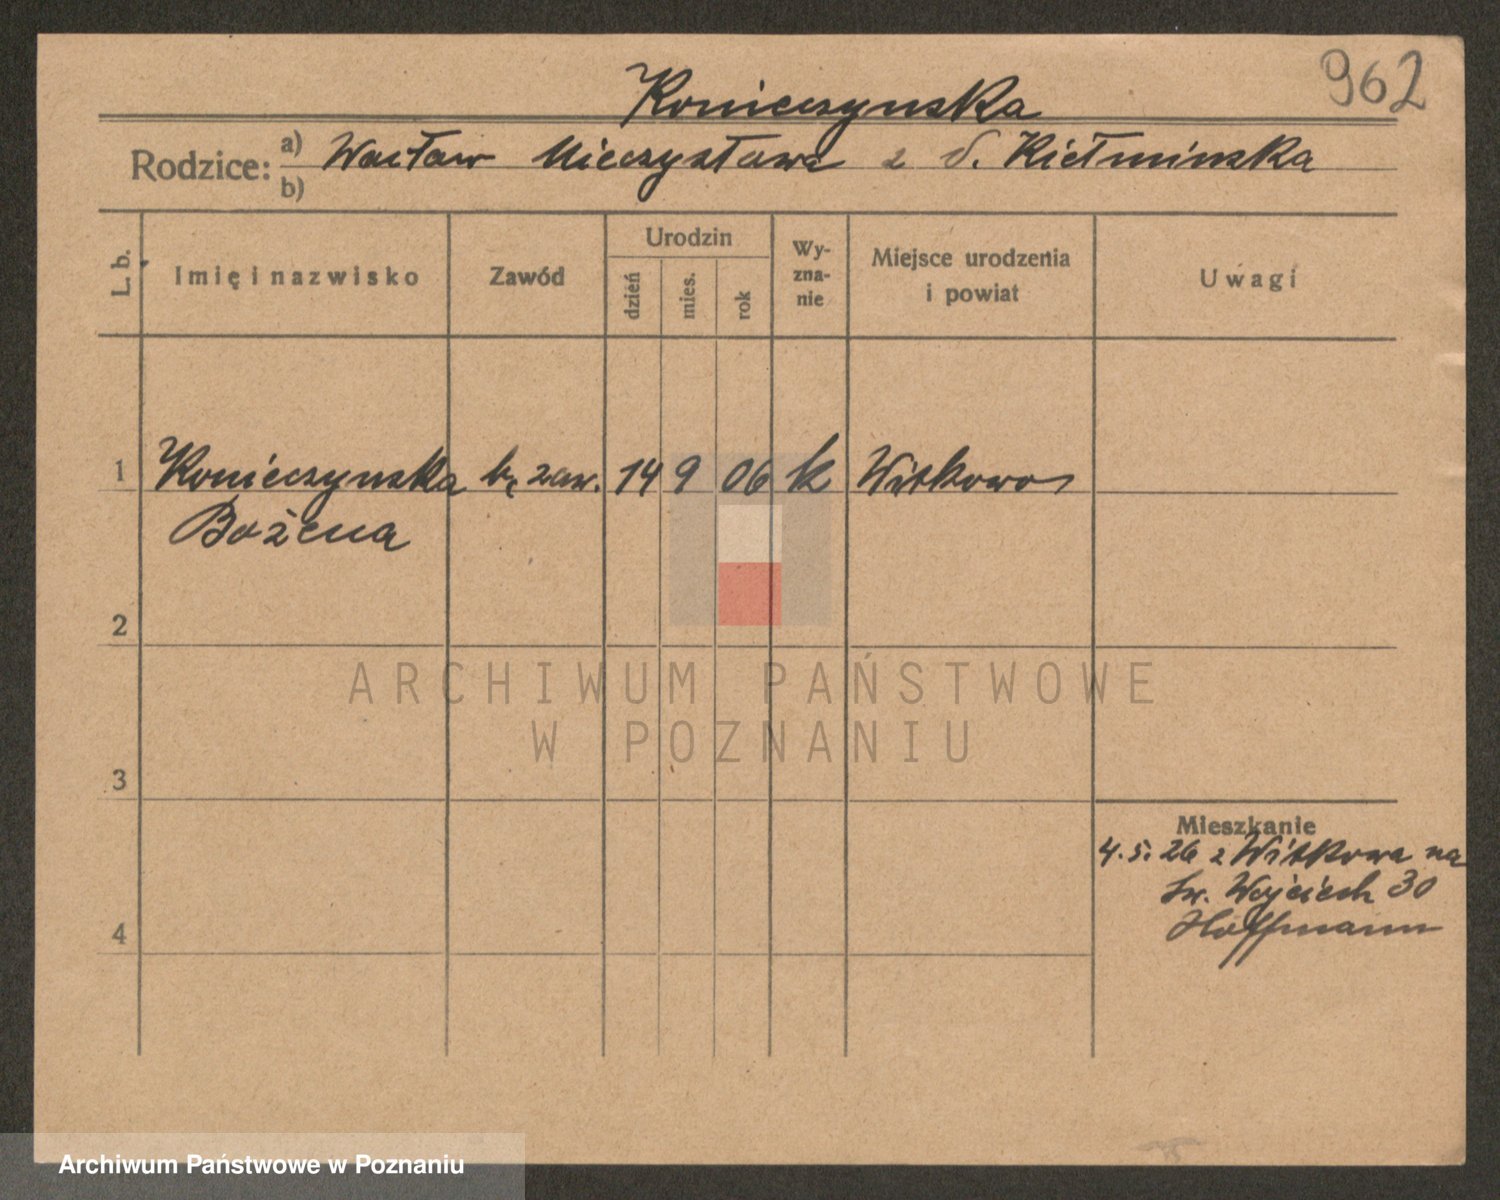 962
Konieczynska
Rodzice: a) Wacław Mieczysława z d. Kiełminska
b)
L. b. Imię i nazwisko Zawód Urodzin dzień mies. rok Wy-zna-nie Miejsce urodzenia i powiat Uwagi
1 Konieczynska b. zaw. 14 9 06 k Witkowo
Bożena
2
ARCHIWUM PAŃSTWOWE
W POZNANIU
3
Mieszkanie
4. 5. 26 z Witkowa na
Św. Wojciech 30
Hoffmann
4
Archiwum Państwowe w Poznaniu